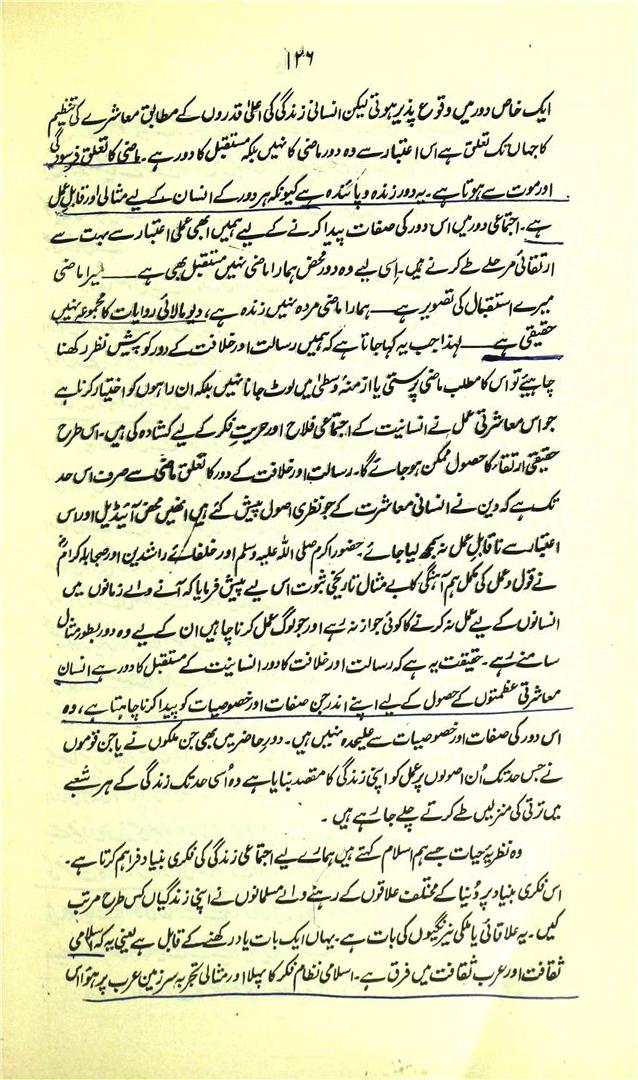 ۱۲۶
ایک خاص دور میں وقوع پذیر ہوتی لیکن انسانی زندگی کی اعلیٰ قدروں کے مطابق معاشرے کی تنظیم
کا جہاں تک تعلق ہے اس اعتبار سے وہ دور ماضی کا نہیں بلکہ مستقبل کا دور ہے۔ ماضی کا تعلق فرسودگی
اور موت سے ہوتا ہے۔ یہ دور زندہ و پائندہ ہے کیونکہ ہر دور کے انسان کے لیے مثالی اور قابلِ عمل
ہے۔ اجتماعی دور میں اس دور کی صفات پیدا کرنے کے لیے ہمیں ابھی عملی اعتبار سے بہت سے
ارتقائی مرحلے طے کرنے ہیں۔ اسی لیے وہ دور محض ہمارا ماضی نہیں مستقبل بھی ہے ــــــ میرا ماضی
میرے استقبال کی تصویر ہے ــــــ ہمارا ماضی مردہ نہیں زندہ ہے، دیو مالائی روایات کا مجموعہ نہیں
حقیقی ہے ــــــ لہٰذا جب یہ کہا جاتا ہے کہ ہمیں رسالت اور خلافت کے دور کو پیش نظر رکھنا
چاہیئے تو اس کا مطلب ماضی پرستی یا ازمنۂ وسطیٰ میں لوٹ جانا نہیں بلکہ ان راہوں کو اختیار کرنا ہے
جو اس معاشرتی عمل نے انسانیت کے اجتماعی فلاح اور حریتِ فکر کے لیے کشادہ کی ہیں۔ اس طرح
حقیقی ارتقاء کا حصول ممکن ہو جائے گا۔ رسالت اور خلافت کے دور کا تعلق ماضی سے صرف اس حد
تک ہے کہ دین نے انسانی معاشرت کے جو نظری اصول پیش کئے ہیں انھیں محض آئیڈیل اور اس
اعتبار سے ناقابلِ عمل نہ سمجھ لیا جائے حضور اکرم صلی اللہ علیہ وسلم اور خلفائے راشدین اور صحابہ کرامؓ
نے قول و عمل کی مکمل ہم آہنگی کا بے مثال تاریخی ثبوت اس لیے پیش فرمایا کہ آنے والے زمانوں میں
انسانوں کے لیے عمل نہ کرنے کا کوئی جواز نہ رہے اور جو لوگ عمل کرنا چاہیں ان کے لیے وہ دور بطور مثال
سامنے رہے۔ حقیقت یہ ہے کہ رسالت اور خلافت کا دور انسانیت کے مستقبل کا دور ہے انسان
معاشرتی عظمتوں کے حصول کے لیے اپنے اندر جن صفات اور خصوصیات کو پیدا کرنا چاہتا ہے، وہ
اس دور کی صفات اور خصوصیات سے علیحدہ نہیں ہیں۔ دورِ حاضر میں بھی جن ملکوں نے یا جن قوموں
نے جس حد تک اُن اصولوں پر عمل کو اپنی زندگی کا مقصد بنایا ہے وہ اُسی حد تک زندگی کے ہر شعبے
میں ترقی کی منزلیں طے کرتے چلے جا رہے ہیں۔
وہ نظریۂ حیات جسے ہم اسلام کہتے ہیں ہمارے لیے اجتماعی زندگی کی فکری بنیاد فراہم کرتا ہے۔
اس فکری بنیاد پر دُنیا کے مختلف علاقوں کے رہنے والے مسلمانوں نے اپنی زندگیاں کس طرح مرتب
کیں۔ یہ علاقائی یا ملکی نیرنگیوں کی بات ہے۔ یہاں ایک بات یاد رکھنے کے قابل ہے یعنی یہ کہ اسلامی
ثقافت اور عرب ثقافت میں فرق ہے۔ اسلامی نظام فکر کا پہلا اور مثالی تجربہ سرزمین عرب پر ہوا اس